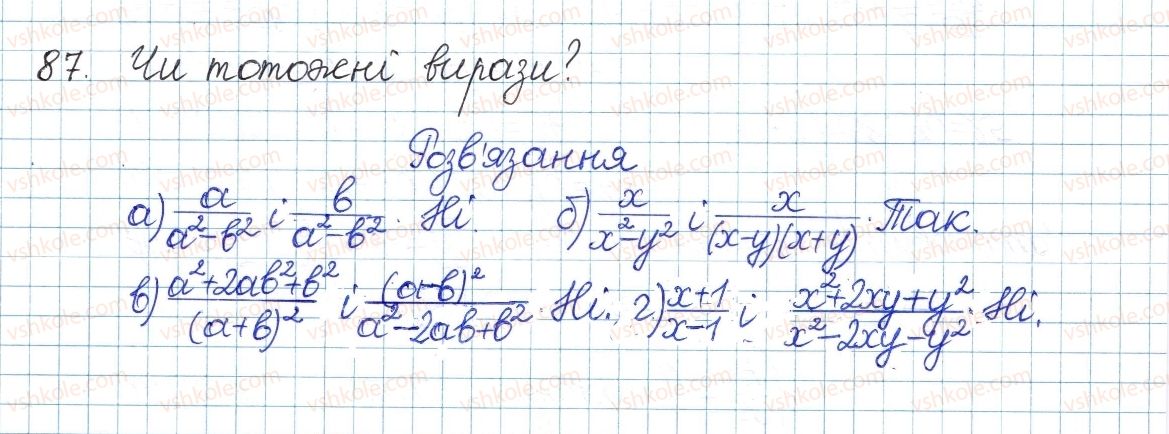 87. Чи тотожні вирази?
Розв'язання
а) a/(a²-b²) і b/(a²-b²). Ні. б) x/(x²-y²) і x/((x-y)(x+y)). Так.
в) (a²+2ab²+b²)/(a+b)² і (a-b)²/(a²-2ab+b²). Ні. г) (x+1)/(x-1) і (x²+2xy+y²)/(x²-2xy-y²). Ні.
vshkole.com